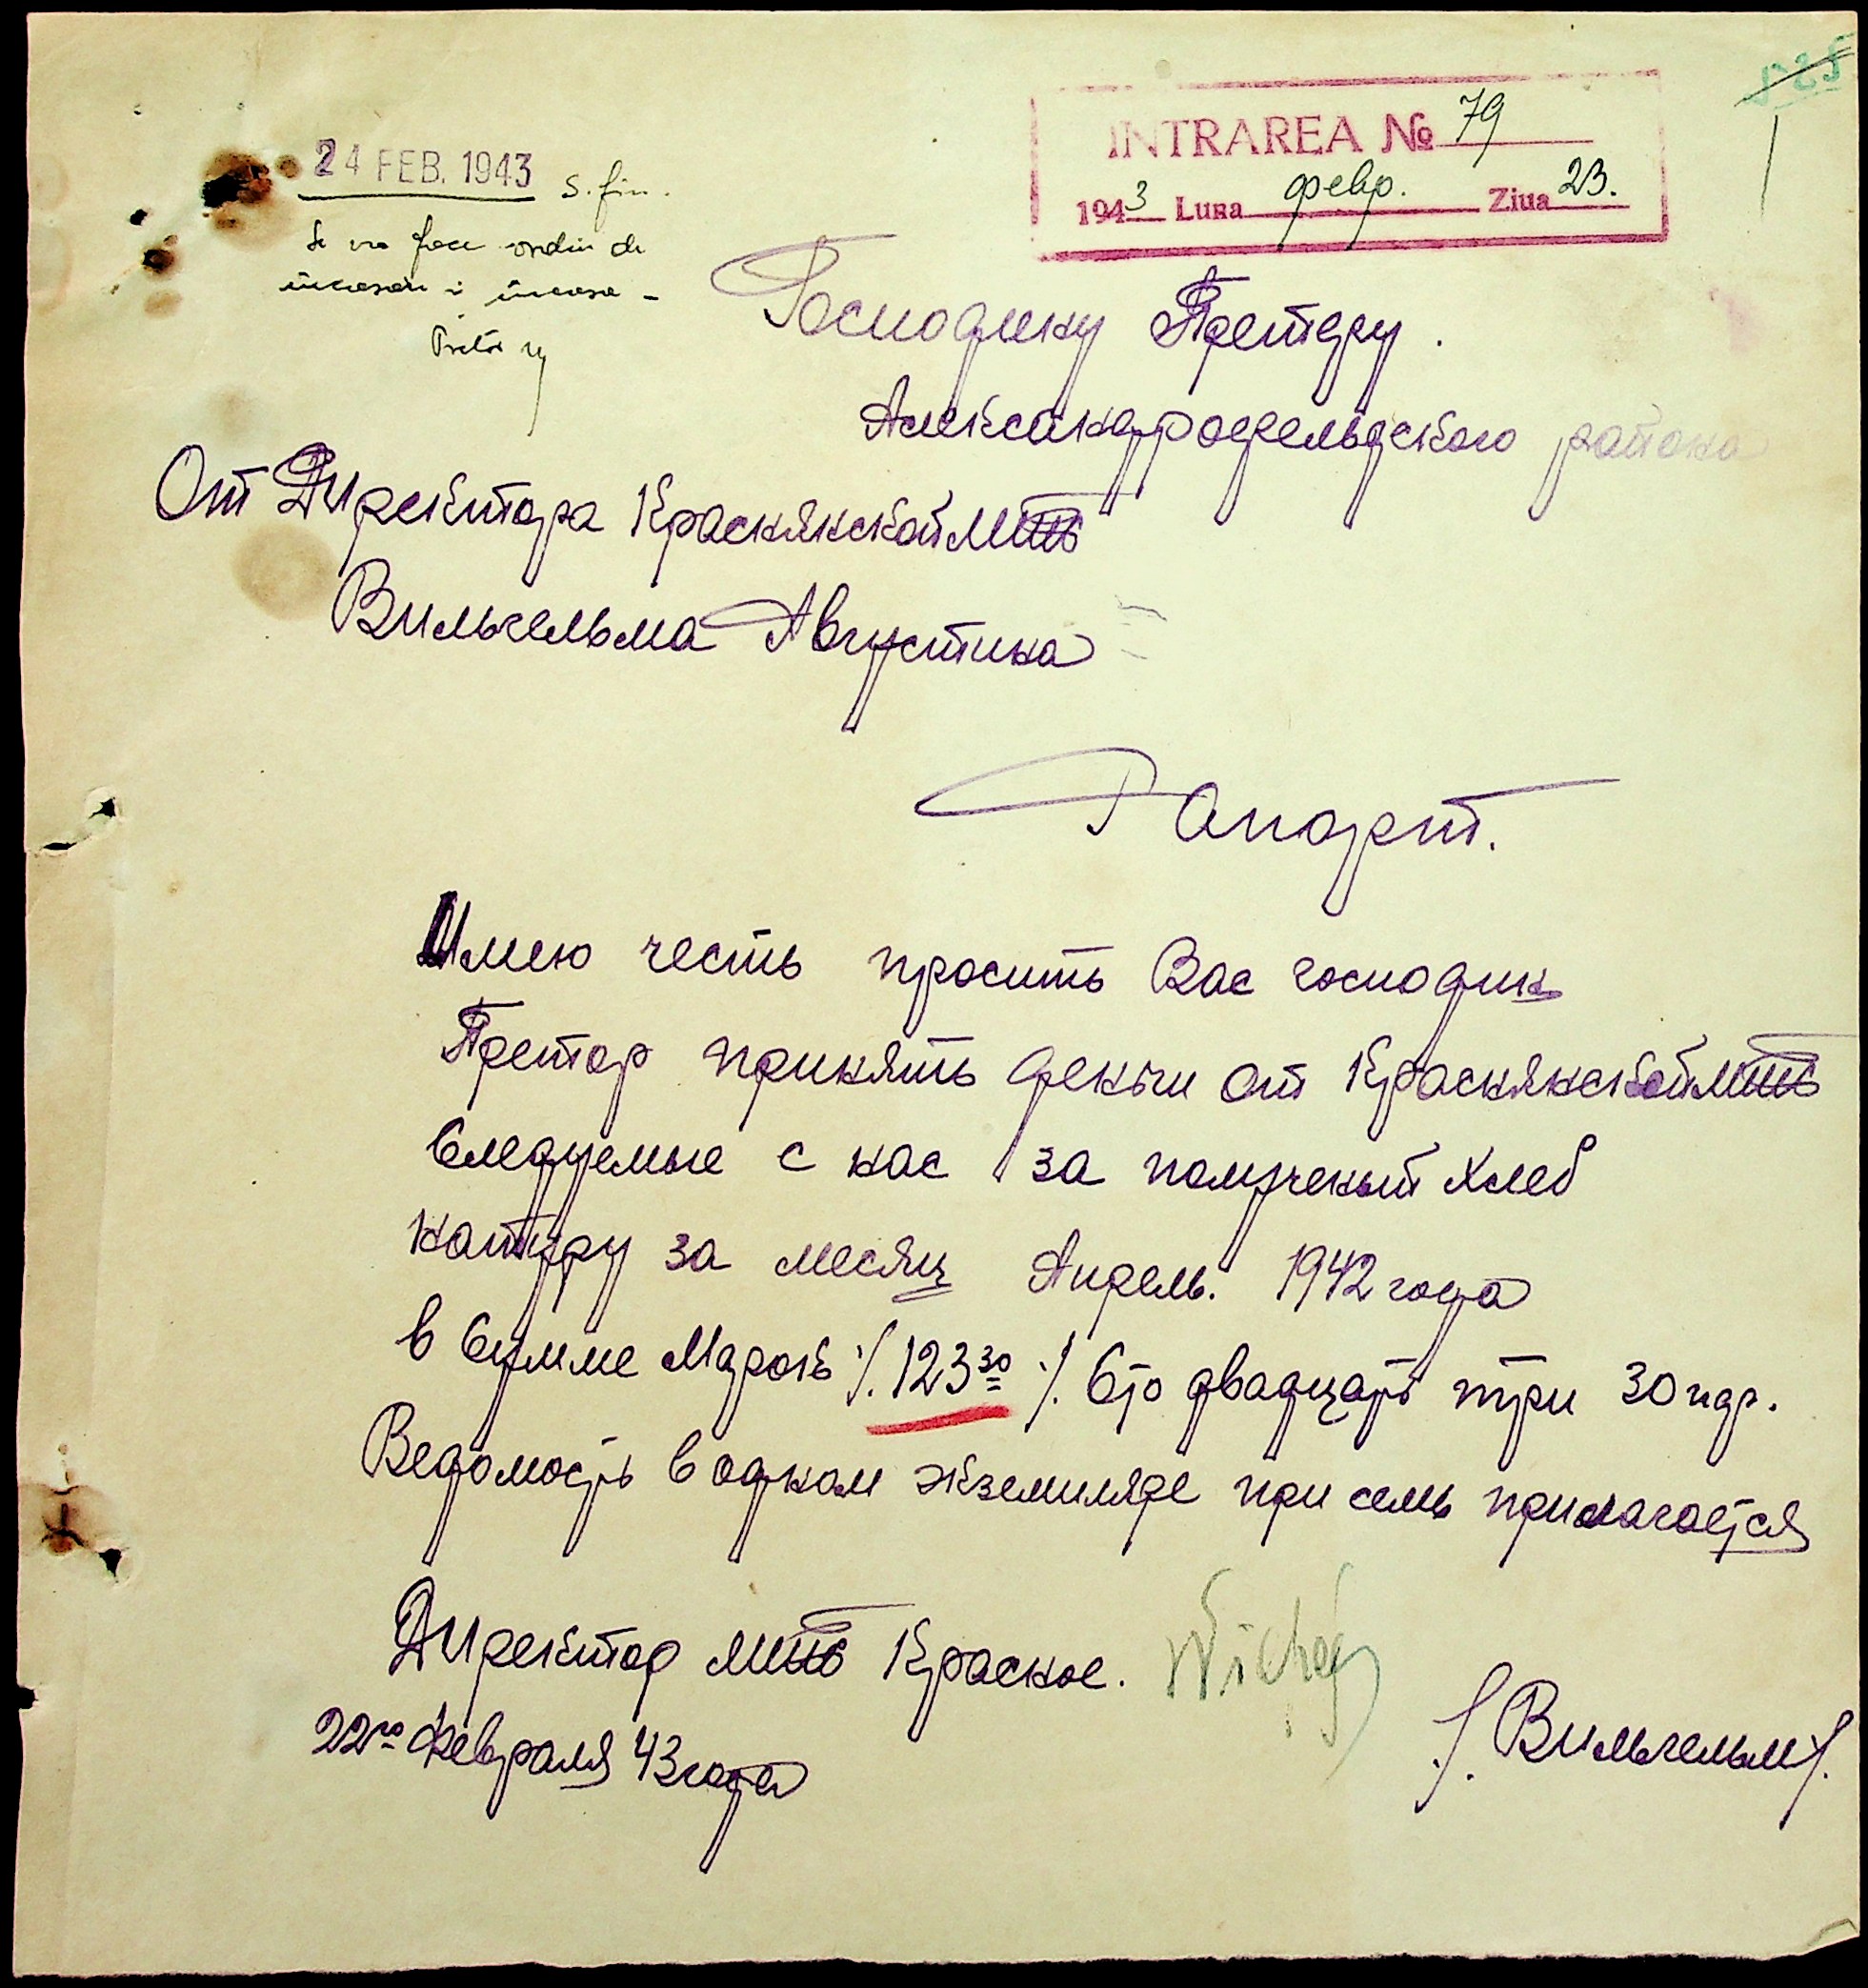 525
INTRAREA № 79
1943 Luna февр. Ziua 23.
24 FEB. 1943 S. fin.
Se va face ordin de
incasare i incasa -
Pretor
Господину Претору.
Александрофельдского района
От Директора Краснянской МТС
Вильгельма Августина
Рапорт.
Имею честь просить Вас господин
Претор принять деньги от Краснянской МТС
Следуемые с нас за полученый хлеб
натуру за месяц Апрель. 1942 года
в Сумме Марок ·/. 123 30 ·/. Сто двадцать три 30 пф.
Ведомость в одном экземпляре при семь прилагается
Директор МТС Красное.
22го Февраля 43 года
/. Вильгельм /.